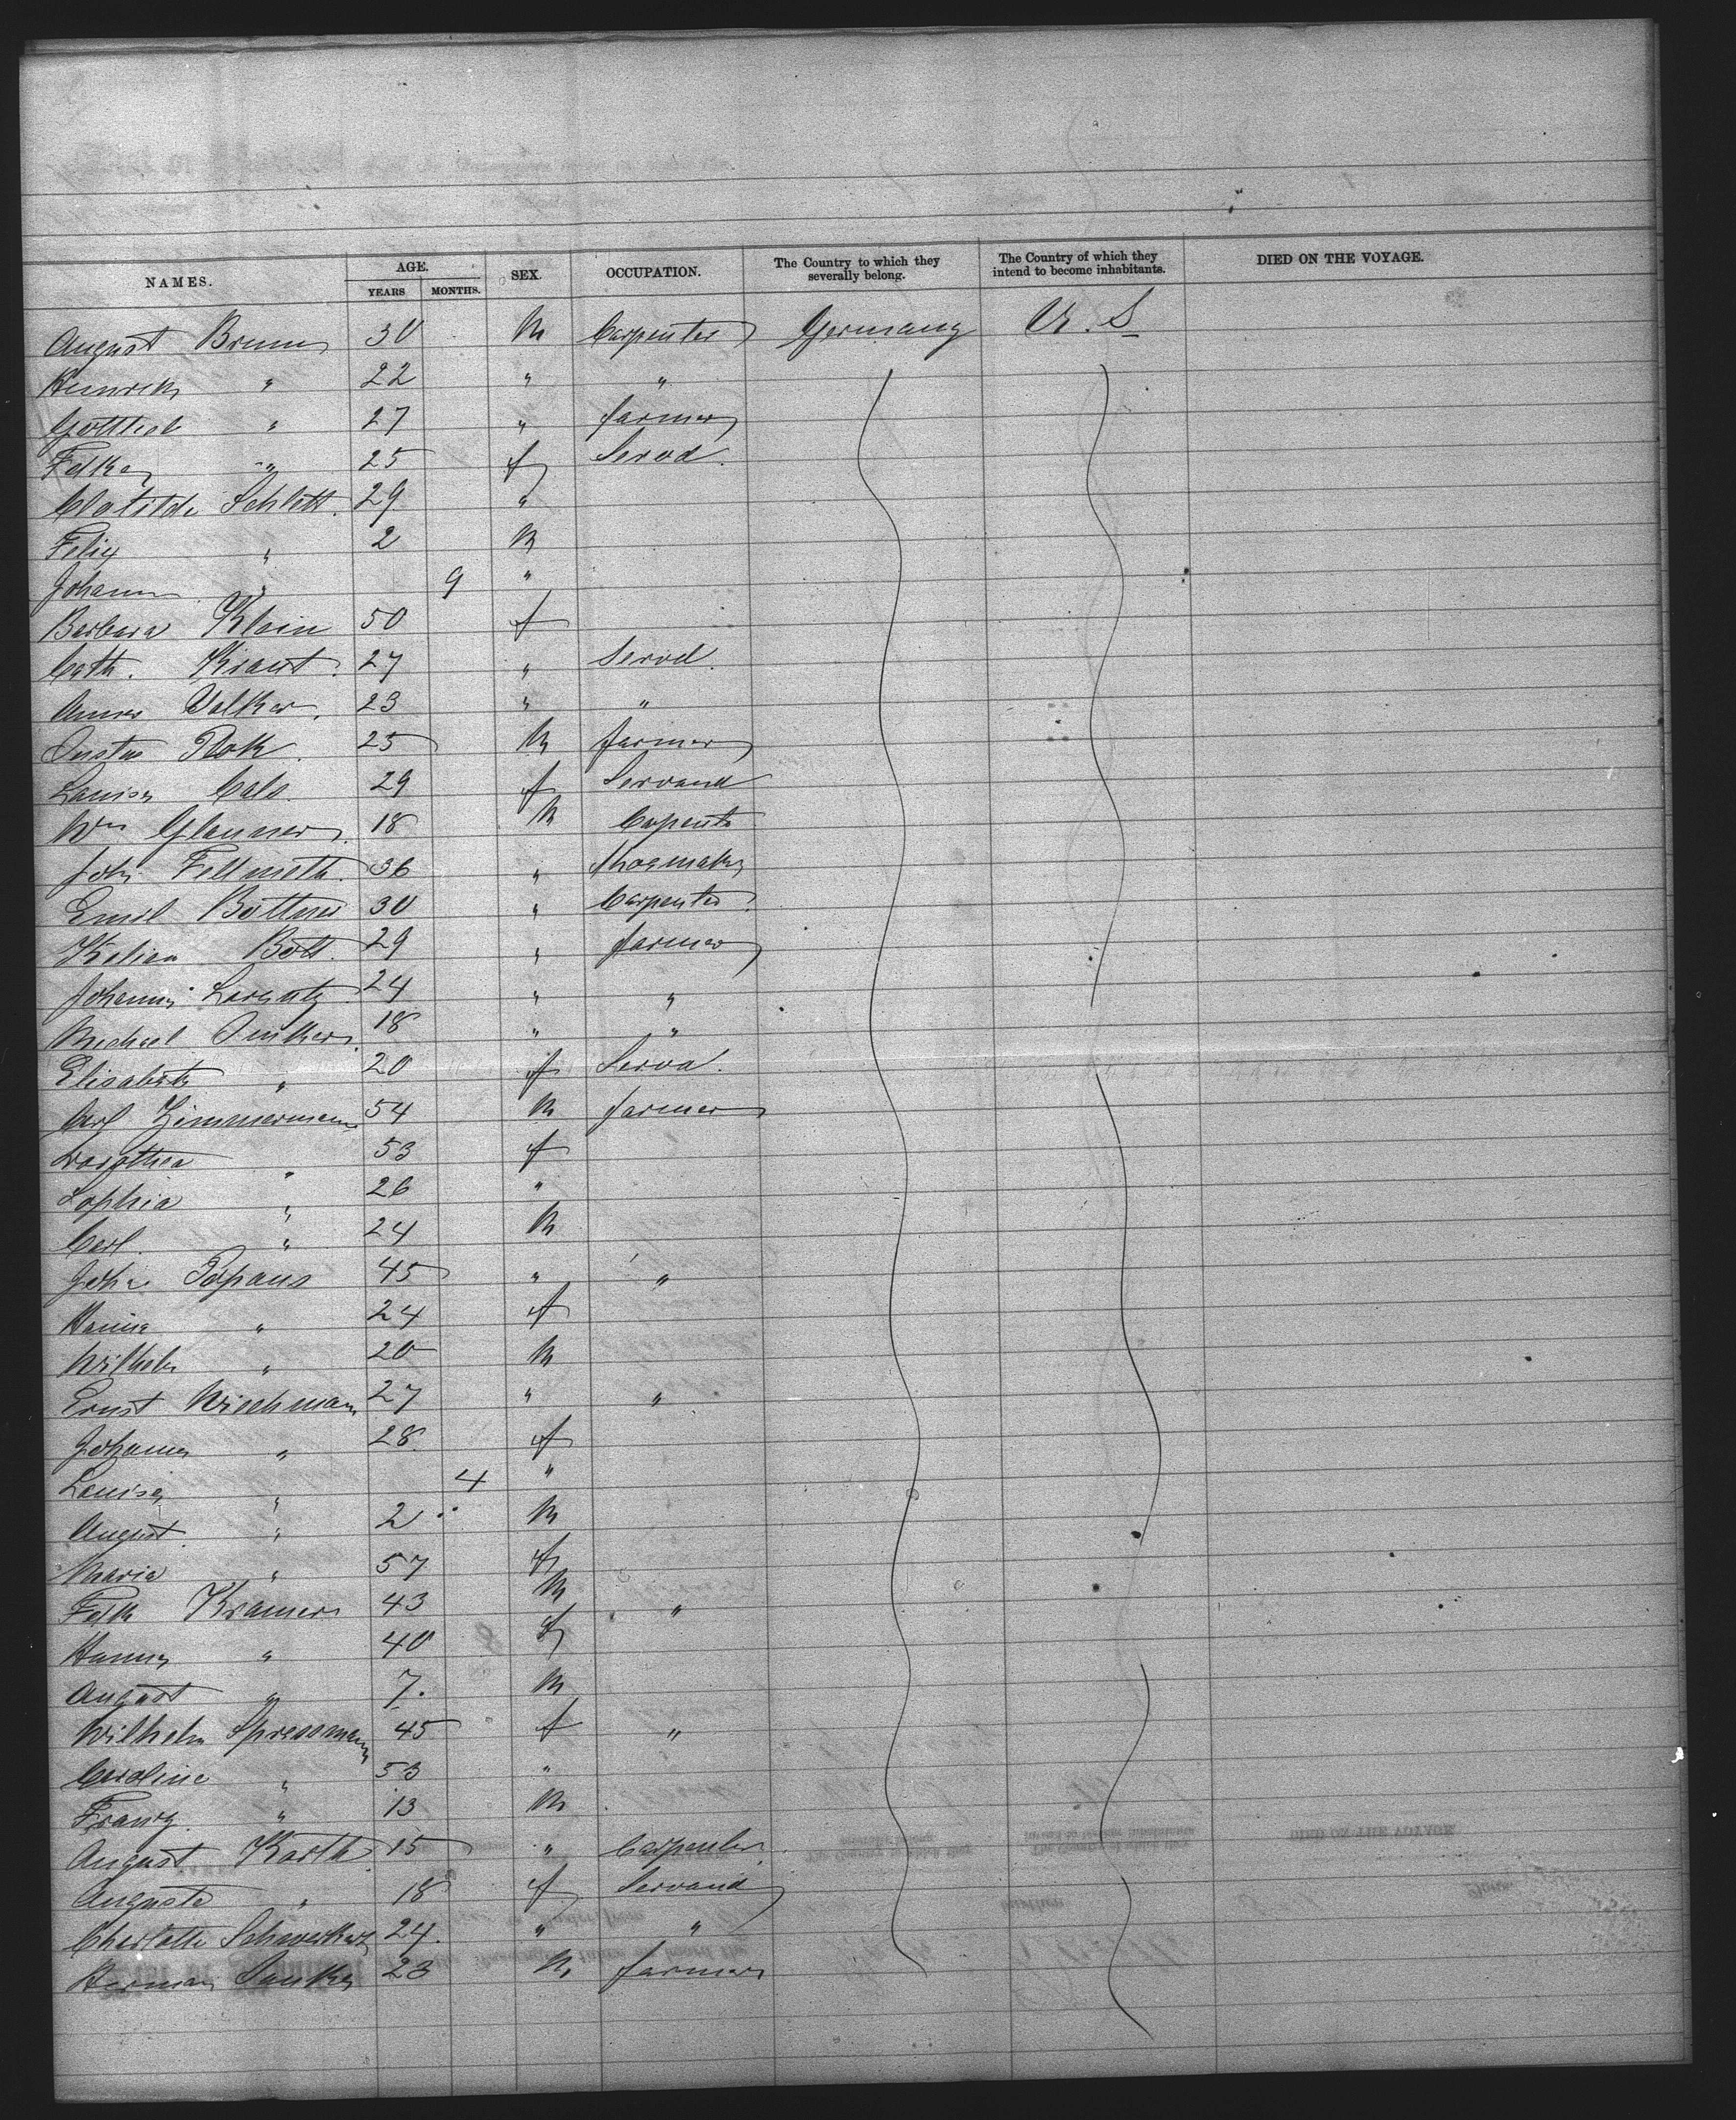 NAMES. AGE. YEARS MONTHS. SEX. OCCUPATION. The Country to which they severally belong. The Country of which they intend to become inhabitants. DIED ON THE VOYAGE.
August Brunn 30 M Carpenter Germany U. S
Heinrich " 22 " "
Gottlieb " 27 " farmer
" 25 f Servd.
Clotilde Schlett. 29 "
Felix " 2 M
Johann " 9 "
Barbara Klein 50 f
Cath. Kraut. 27 " Servd.
Anna Volker. 23 " "
Gustav 25 M farmer
Louisa 29 f Servand
Wm Glenner. 18 M Carpente
Joh. Fellmeth. 36 " Shoemaker
Emil Bottner 30 " Carpenter
Kilian Bott. 29 " farmer
Johannis Lorentz 24 " "
Michael 18 " "
Elisabeth " 20 f Serva.
Carl Zimmermann 54 M farmer
Dorothea " 53 f
Sophia " 26 "
Carl. " 24 M
Joh. Papaus 45 " "
Hanna " 24 f
Wilhelm " 20 M
Ernst Wiechmann 27 " "
Johanna " 28. f
Louisa " 4 "
August. " 2 M
Maria " 57 f
Kramer 43 M "
Hanna " 40 f
August " 7. M
Wilhelm Spressmann 45 f "
Caroline " 53 "
Franz. " 13 M
August Karth. 15 " Carpenter.
Auguste " 18 f Servand
Charlotte 24. " "
Herman 23 M farmer